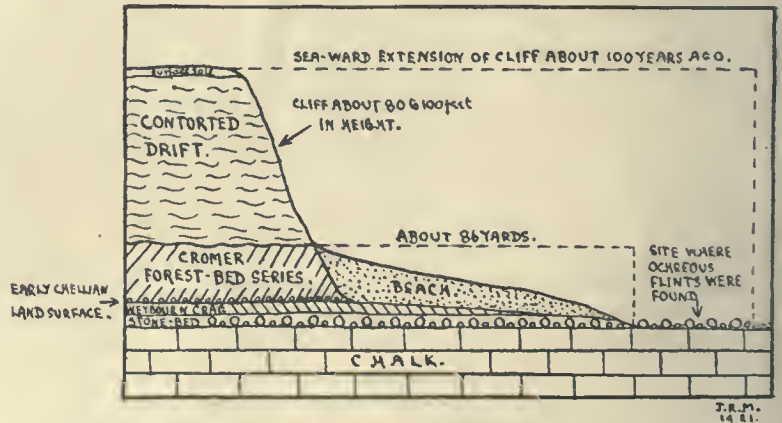 SEA-WARD EXTENSION OF CLIFF ABOUT 100 YEARS AGO.
SURFACE SOIL
CLIFF ABOUT 80 to 100 feet
IN HEIGHT.
CONTORTED
DRIFT.
ABOUT 86 YARDS.
CROMER
FOREST-BED SERIES
SITE WHERE
OCHREOUS
FLINTS WERE
FOUND
BEACH.
EARLY CHELLIAN
LAND SURFACE.
WEYBOURN CRAG
STONE-BED
CHALK.
J.R.M.
1921.